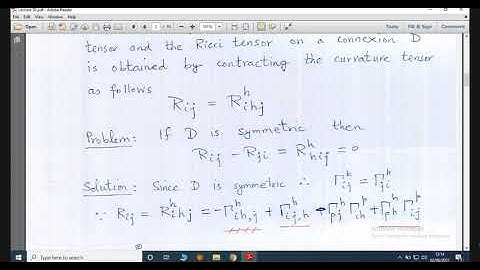 Lecture 30.pdf - Adobe Reader
File Edit View Window Help
tensor and the Ricci tensor on a connexion D
is obtained by contracting the curvature tensor
as follows
R_{ij} = R^h_{ihj}
Problem: If D is symmetric then
R_{ij} - R_{ji} = R^h_{hij} = 0
Solution: Since D is symmetric ∴ Γ^h_{ij} = Γ^h_{ji}
∵ R_{ij} = R^h_{ihj} = -Γ^h_{ih,j} + Γ^h_{ij,h} - Γ^h_{pj} Γ^p_{ih} + Γ^h_{ph} Γ^p_{ij}
Type here to search